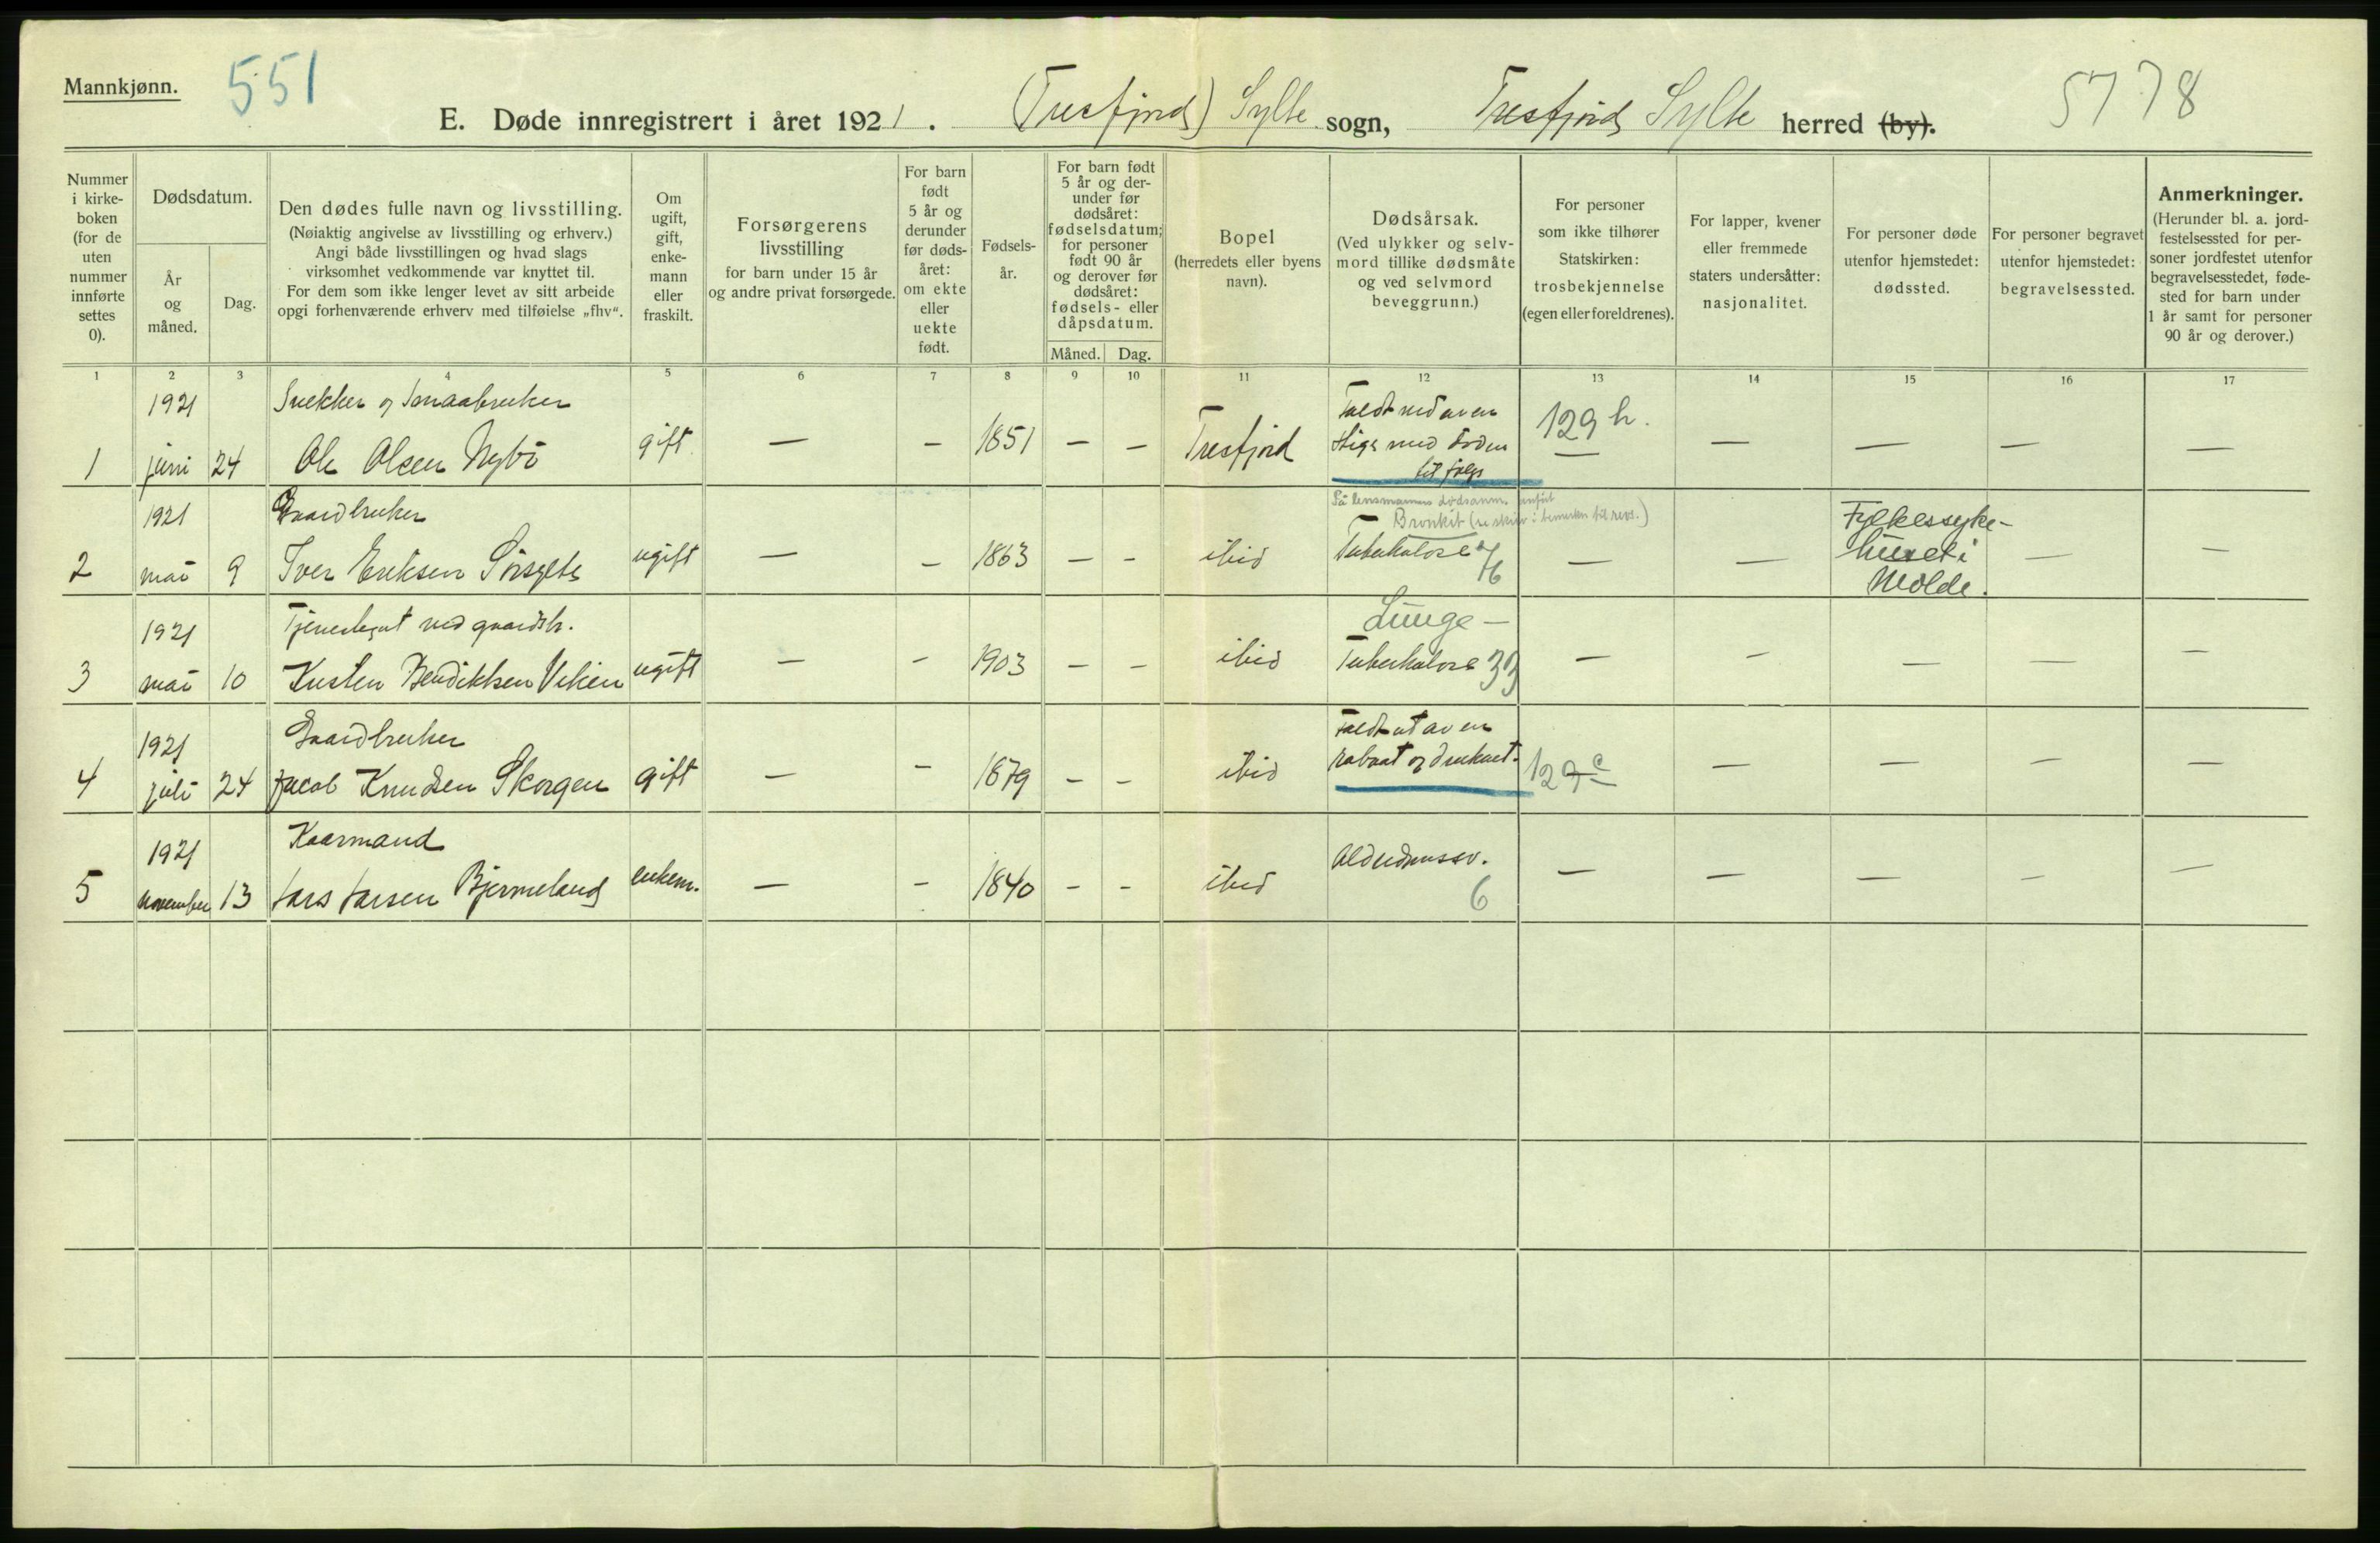 Mannkjønn.
551
E. Døde innregistrert i året 1921. (Tresfjord) Sylte sogn, Tresfjord Sylte herred (by).
5778
Nummer i kirke-boken (for de uten nummer innførte settes 0).
Dødsdatum.
År og måned.
Dag.
Den dødes fulle navn og livsstilling.
(Nøiaktig angivelse av livsstilling og erhverv.)
Angi både livsstillingen og hvad slags
virksomhet vedkommende var knyttet til.
For dem som ikke lenger levet av sitt arbeide
opgi forhenværende erhverv med tilføielse „fhv“.
Om ugift, gift, enke-mann eller fraskilt.
Forsørgerens
livsstilling
for barn under 15 år
og andre privat forsørgede.
For barn født 5 år og derunder før døds-året: om ekte eller uekte født.
Fødsels-
år.
For barn født
5 år og der-
under før
dødsåret:
fødselsdatum;
for personer
født 90 år
og derover før
dødsåret:
fødsels- eller
dåpsdatum.
Måned. Dag.
Bopel
(herredets eller byens
navn).
Dødsårsak.
(Ved ulykker og selv-
mord tillike dødsmåte
og ved selvmord
beveggrunn.)
For personer
som ikke tilhører
Statskirken:
trosbekjennelse
(egen eller foreldrenes).
For lapper, kvener
eller fremmede
staters undersåtter:
nasjonalitet.
For personer døde
utenfor hjemstedet:
dødssted.
For personer begravet
utenfor hjemstedet:
begravelsessted.
Anmerkninger.
(Herunder bl. a. jord-
festelsessted for per-
soner jordfestet utenfor
begravelsesstedet, føde-
sted for barn under
1 år samt for personer
90 år og derover.)
1 2 3 4 5 6 7 8 9 10 11 12 13 14 15 16 17
1921 Snekker og Smaabruker
1 juni 24 Ole Olsen Nybö gift — — 1851 — — Tresfjord
Faldt ned av en
stige med döden
til følge
129 h. — — — — —
1921 Gaardbruker
2 mai 9 Iver Eriksen Sörsylte ugift — — 1863 — — ibid
På lensmannens dødsanm. anført
Bronkit
Tuberkulose
— — Fylkessyke-
huset i
Molde. — —
1921 Tjenestegut ved gaardsbr.
3 mai 10 Kristen Bendiktsen Viken ugift — — 1903 — — ibid
Lunge-
Tuberkulose 33 — — — — —
1921 Gaardbruker
4 juli 24 Jacob Knudsen Skorgen gift — — 1879 — — ibid
Faldt ut av en
robaat og druknet.
129 c — — — —
1921 Kaarmand
5 november 13 Lars Larsen Bjermeland enkem. — — 1840 — — ibid
Alderdomssv.
6 — — — — —